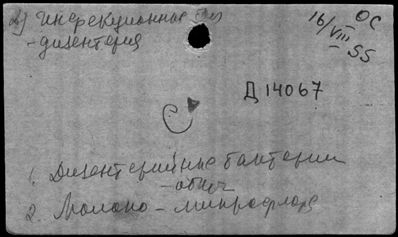 2) Инфекционные
- дизентерия
16/VIII - 55
ОС
Д 14067
1. Дизентерийные бактерии
2. Молоко - микрофлора